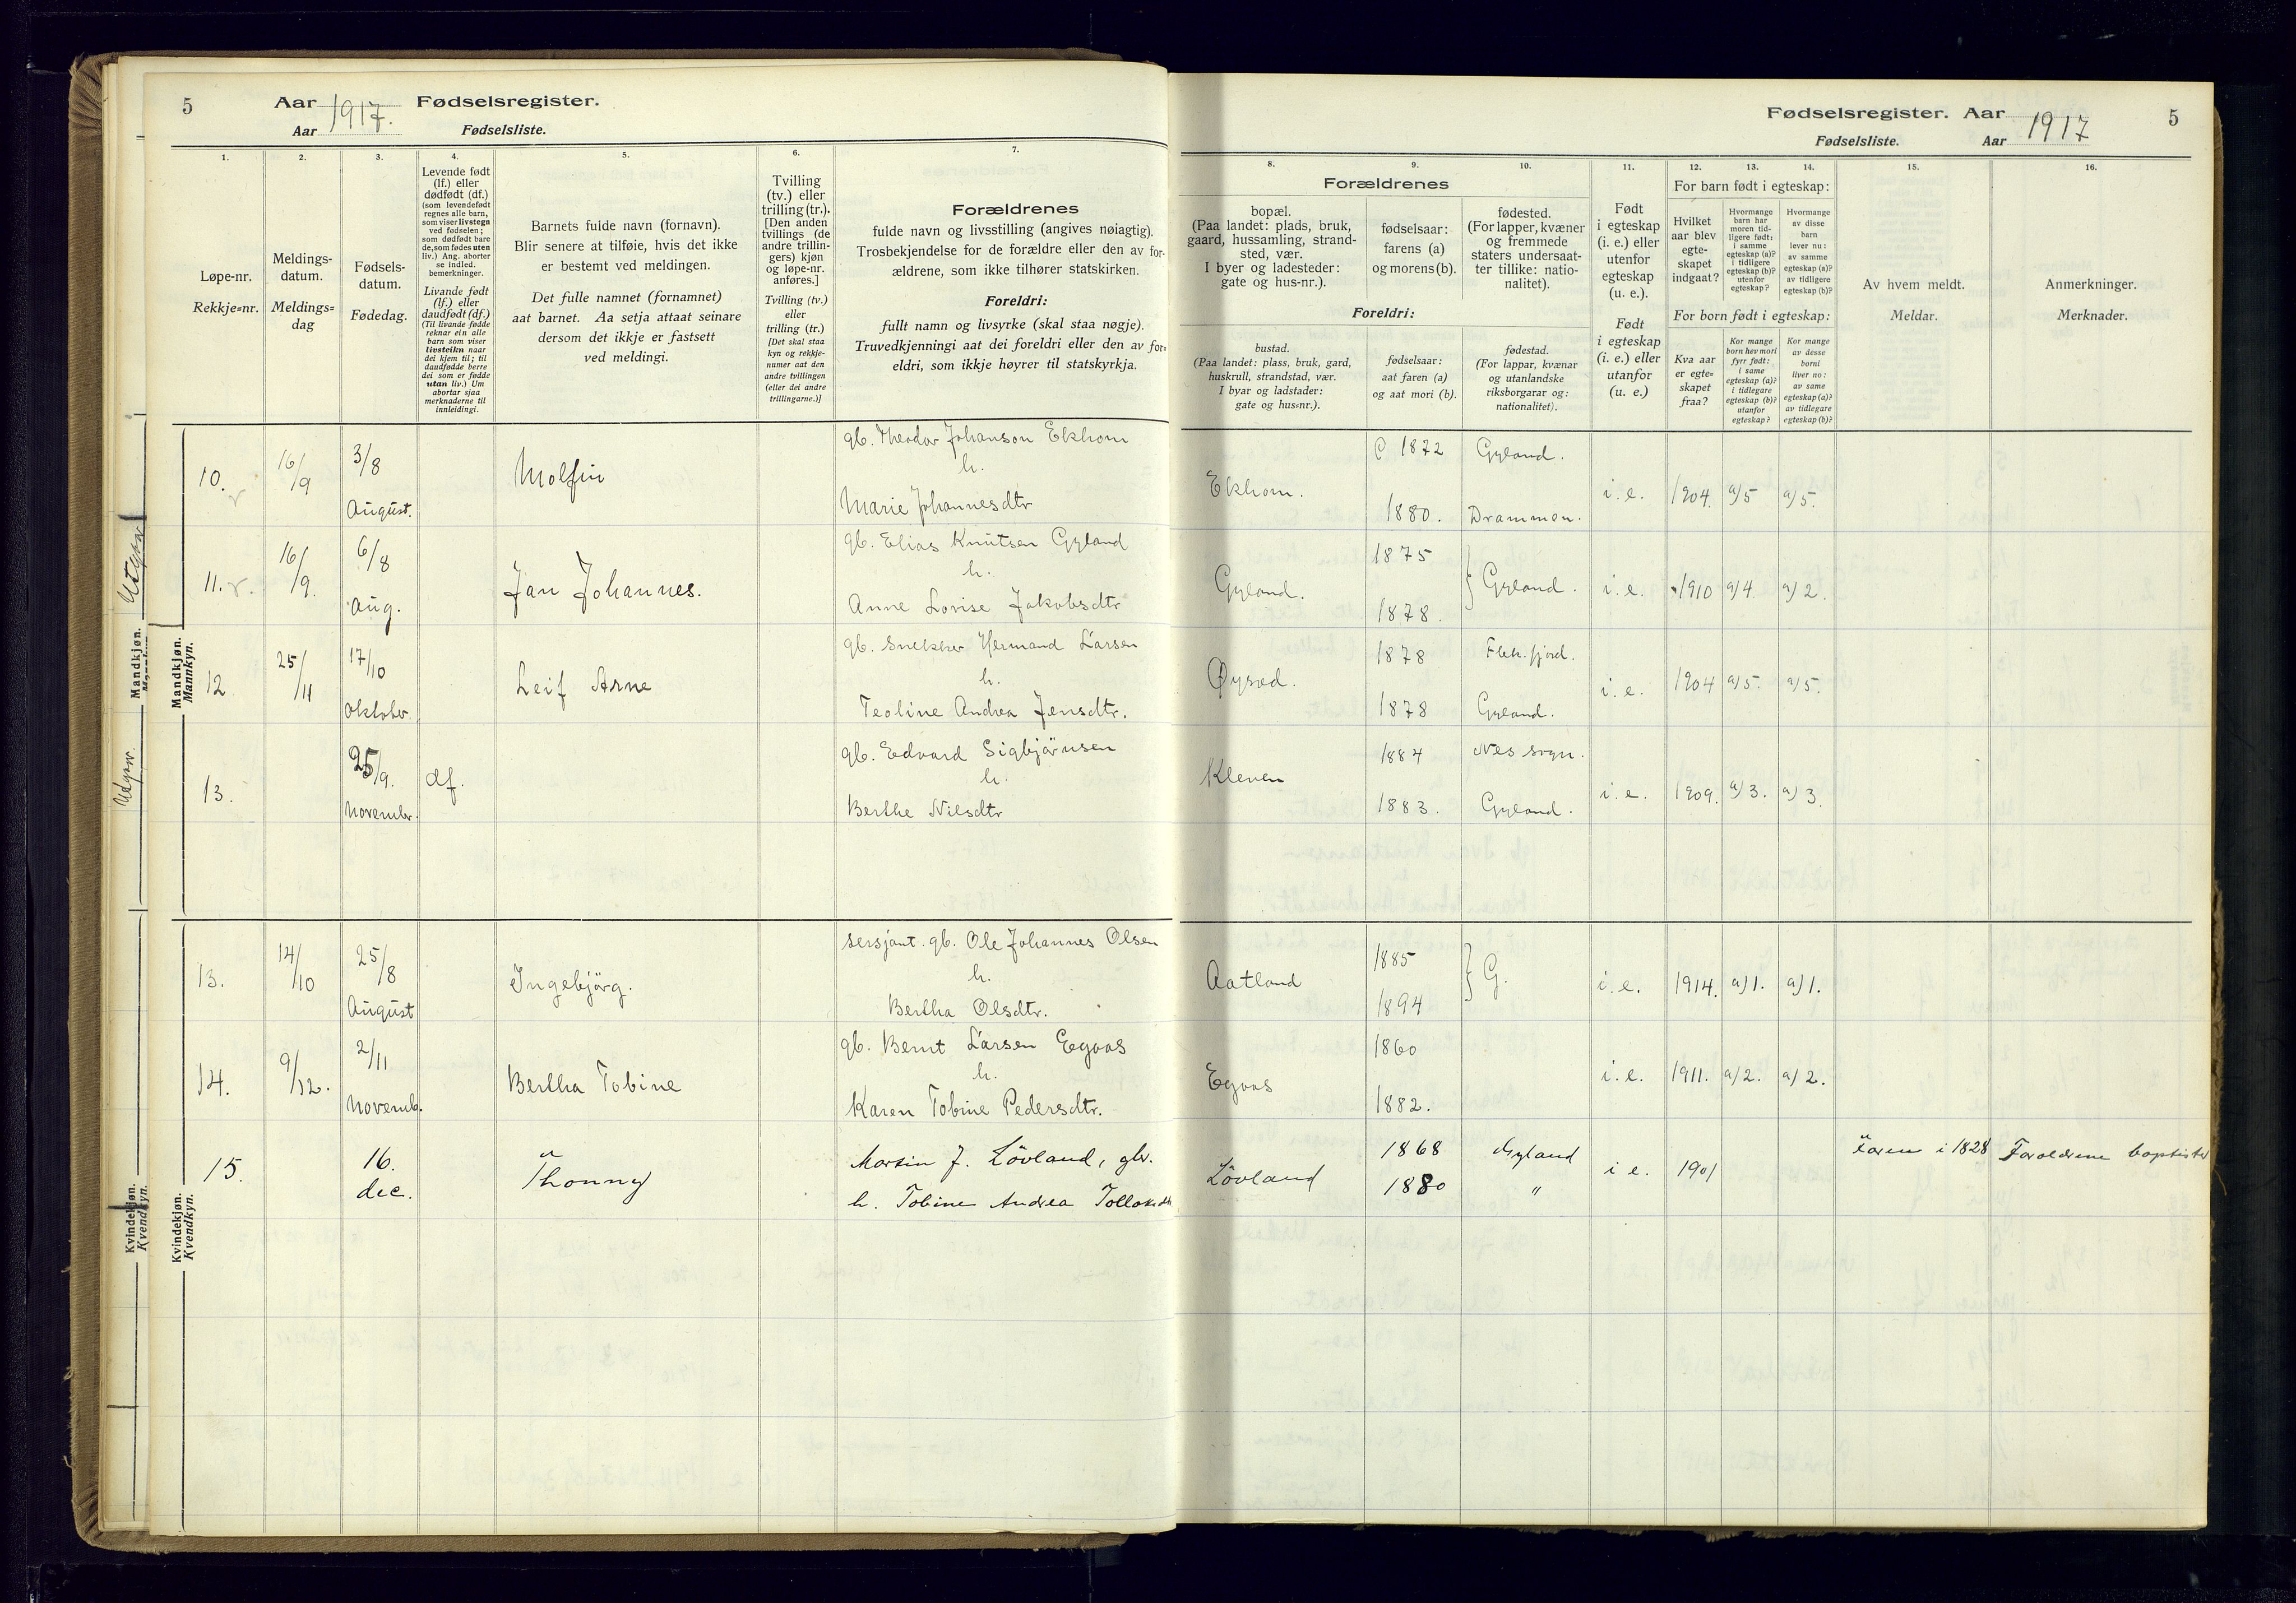 5 Aar 1917. Fødselsregister.
Aar Fødselsliste.
Fødselsregister. Aar 1917 5
Fødselsliste. Aar
1. 2. 3. 4. 5. 6. 7.
Løpe-nr.
Rekkje=nr.
Meldings-
datum.
Meldings=
dag
Fødsels-
datum.
Fødedag.
Levende født
(lf.) eller
dødfødt (df.)
(som levendefødt
regnes alle barn,
som viser livstegn
ved fødselen;
som dødfødt bare
de, som fødes uten
liv.) Ang. aborter
se indled.
bemerkninger.
Livande født
(lf.) eller
daudfødt (df.)
(Til livande fødde
reknar ein alle
barn som viser
livsteikn naar
dei kjem til; til
daudfødde berre
dei som er fødde
utan liv.) Um
abortar sjaa
merknaderne til
innleidingi.
Barnets fulde navn (fornavn).
Blir senere at tilføie, hvis det ikke
er bestemt ved meldingen.
Det fulle namnet (fornamnet)
aat barnet. Aa setja attaat seinare
dersom det ikkje er fastsett
ved meldingi.
Tvilling
(tv.) eller
trilling (tr.).
[Den anden
tvillings (de
andre trillin-
gers) kjøn
og løpe-nr.
anføres.]
Tvilling (tv.)
eller
trilling (tr.)
[Det skal staa
kyn og rekkje-
numer aat den
andre tvillingen
(eller dei andre
trillingarne.)]
Forældrenes
fulde navn og livsstilling (angives nøiagtig).
Trosbekjendelse for de forældre eller den av for-
ældrene, som ikke tilhører statskirken.
Foreldri:
fullt namn og livsyrke (skal staa nøgje).
Truvedkjenningi aat dei foreldri eller den av for=
eldri, som ikkje høyrer til statskyrkja.
8. 9. 10. 11. 12. 13. 14. 15. 16.
Forældrenes
bopæl.
(Paa landet: plads, bruk,
gaard, hussamling, strand-
sted, vær.
I byer og ladesteder:
gate og hus-nr.).
fødselsaar:
farens (a)
og morens (b).
fødested.
(For lapper, kvæner
og fremmede
staters undersaat-
ter tillike: natio-
nalitet).
Foreldri:
bustad.
(Paa landet: plass, bruk, gard,
huskrull, strandstad, vær.
I byar og ladstader:
gate og hus=nr.).
fødselsaar:
aat faren (a)
og aat mori (b).
fødestad.
(For lappar, kvænar
og utanlandske
riksborgarar og:
nationalitet).
Født
i egteskap
(i. e.) eller
utenfor
egteskap
(u. e.).
Født
i egteskap
(i. e.) eller
utanfor
(u. e.)
For barn født i egteskap:
Hvilket
aar blev
egte-
skapet
indgaat?
Hvormange
barn har
moren tid-
ligere født:
i samme
egteskap (a)?
i tidligere
egteskap (b)?
utenfor
egteskap?
Hvormange
av disse
barn
lever nu:
av samme
egteskap (a)?
av tidligere
egteskap (b)?
For born født i egteskap:
Kva aar
er egte=
skapet
fraa?
Kor mange
born hev mori
fyrr født:
i same
egteskap (a)?
i tidlegare
egteskap (b)?
utanfor
egteskap?
Kor mange
av desse
borni
liver no:
av same
egteskap (a)?
av tidlegare
egteskap (b)?
Av hvem meldt.
Meldar.
Anmerkninger.
Merknader.
Mandkjøn.
Mannkyn.
10. 16/9 3/8 August. Molfin gb. Theodor Johanson Ekhom
h.
Marie Johannesdtr
Ekhom. 1872 Gyland. i. e. 1904. a) 5 a) 5.
1880. Drammen.
11. 16/9. 6/8 Aug. Jan Johannes. gb. Elias Knutsen Gyland
h.
Anne Lovise Jakobsdtr
Gyland. 1875 Gyland. i. e. 1910 a) 4. a) 2.
1878.
12 25/11 17/10 Oktober. Leif Arne gb. Snekker Hermand Larsen
h.
Teoline Andrea Jensdtr.
Øysæd. 1878 Flekkfjord. i. e. 1904 a) 5. a) 5.
1878 Gyland.
13. 25/9. November. df. gb. Edvard Sigbjörnsen
h.
Berthe Nilsdtr
Kleven 1884 Nes sogn. i. e. 1909. a) 3. a) 3.
1883. Gyland.
Kvindekjøn.
Kvendkyn.
13. 14/10 25/8 August Ingebjörg. sersjant. gb. Ole Johannes Olsen
h.
Bertha Olsdtr.
Aatland 1885 G. i. e. 1914. a) 1. a) 1.
1894
14. 9/12. 2/11 Novemb. Bertha Tobine gb. Bernt Larsen Egaas
h.
Karen Tobine Pedersdtr.
Egaas 1860 i. e. 1911. a) 2. a) 2.
1882.
15. 16. dec. Thonny Martin J. Lövland, gbr.
h. Tobine Andrea Tollaksdtr
Lövland 1868 Gyland i e. 1901 Faren i 1828 Foreldrene baptister
1880 "